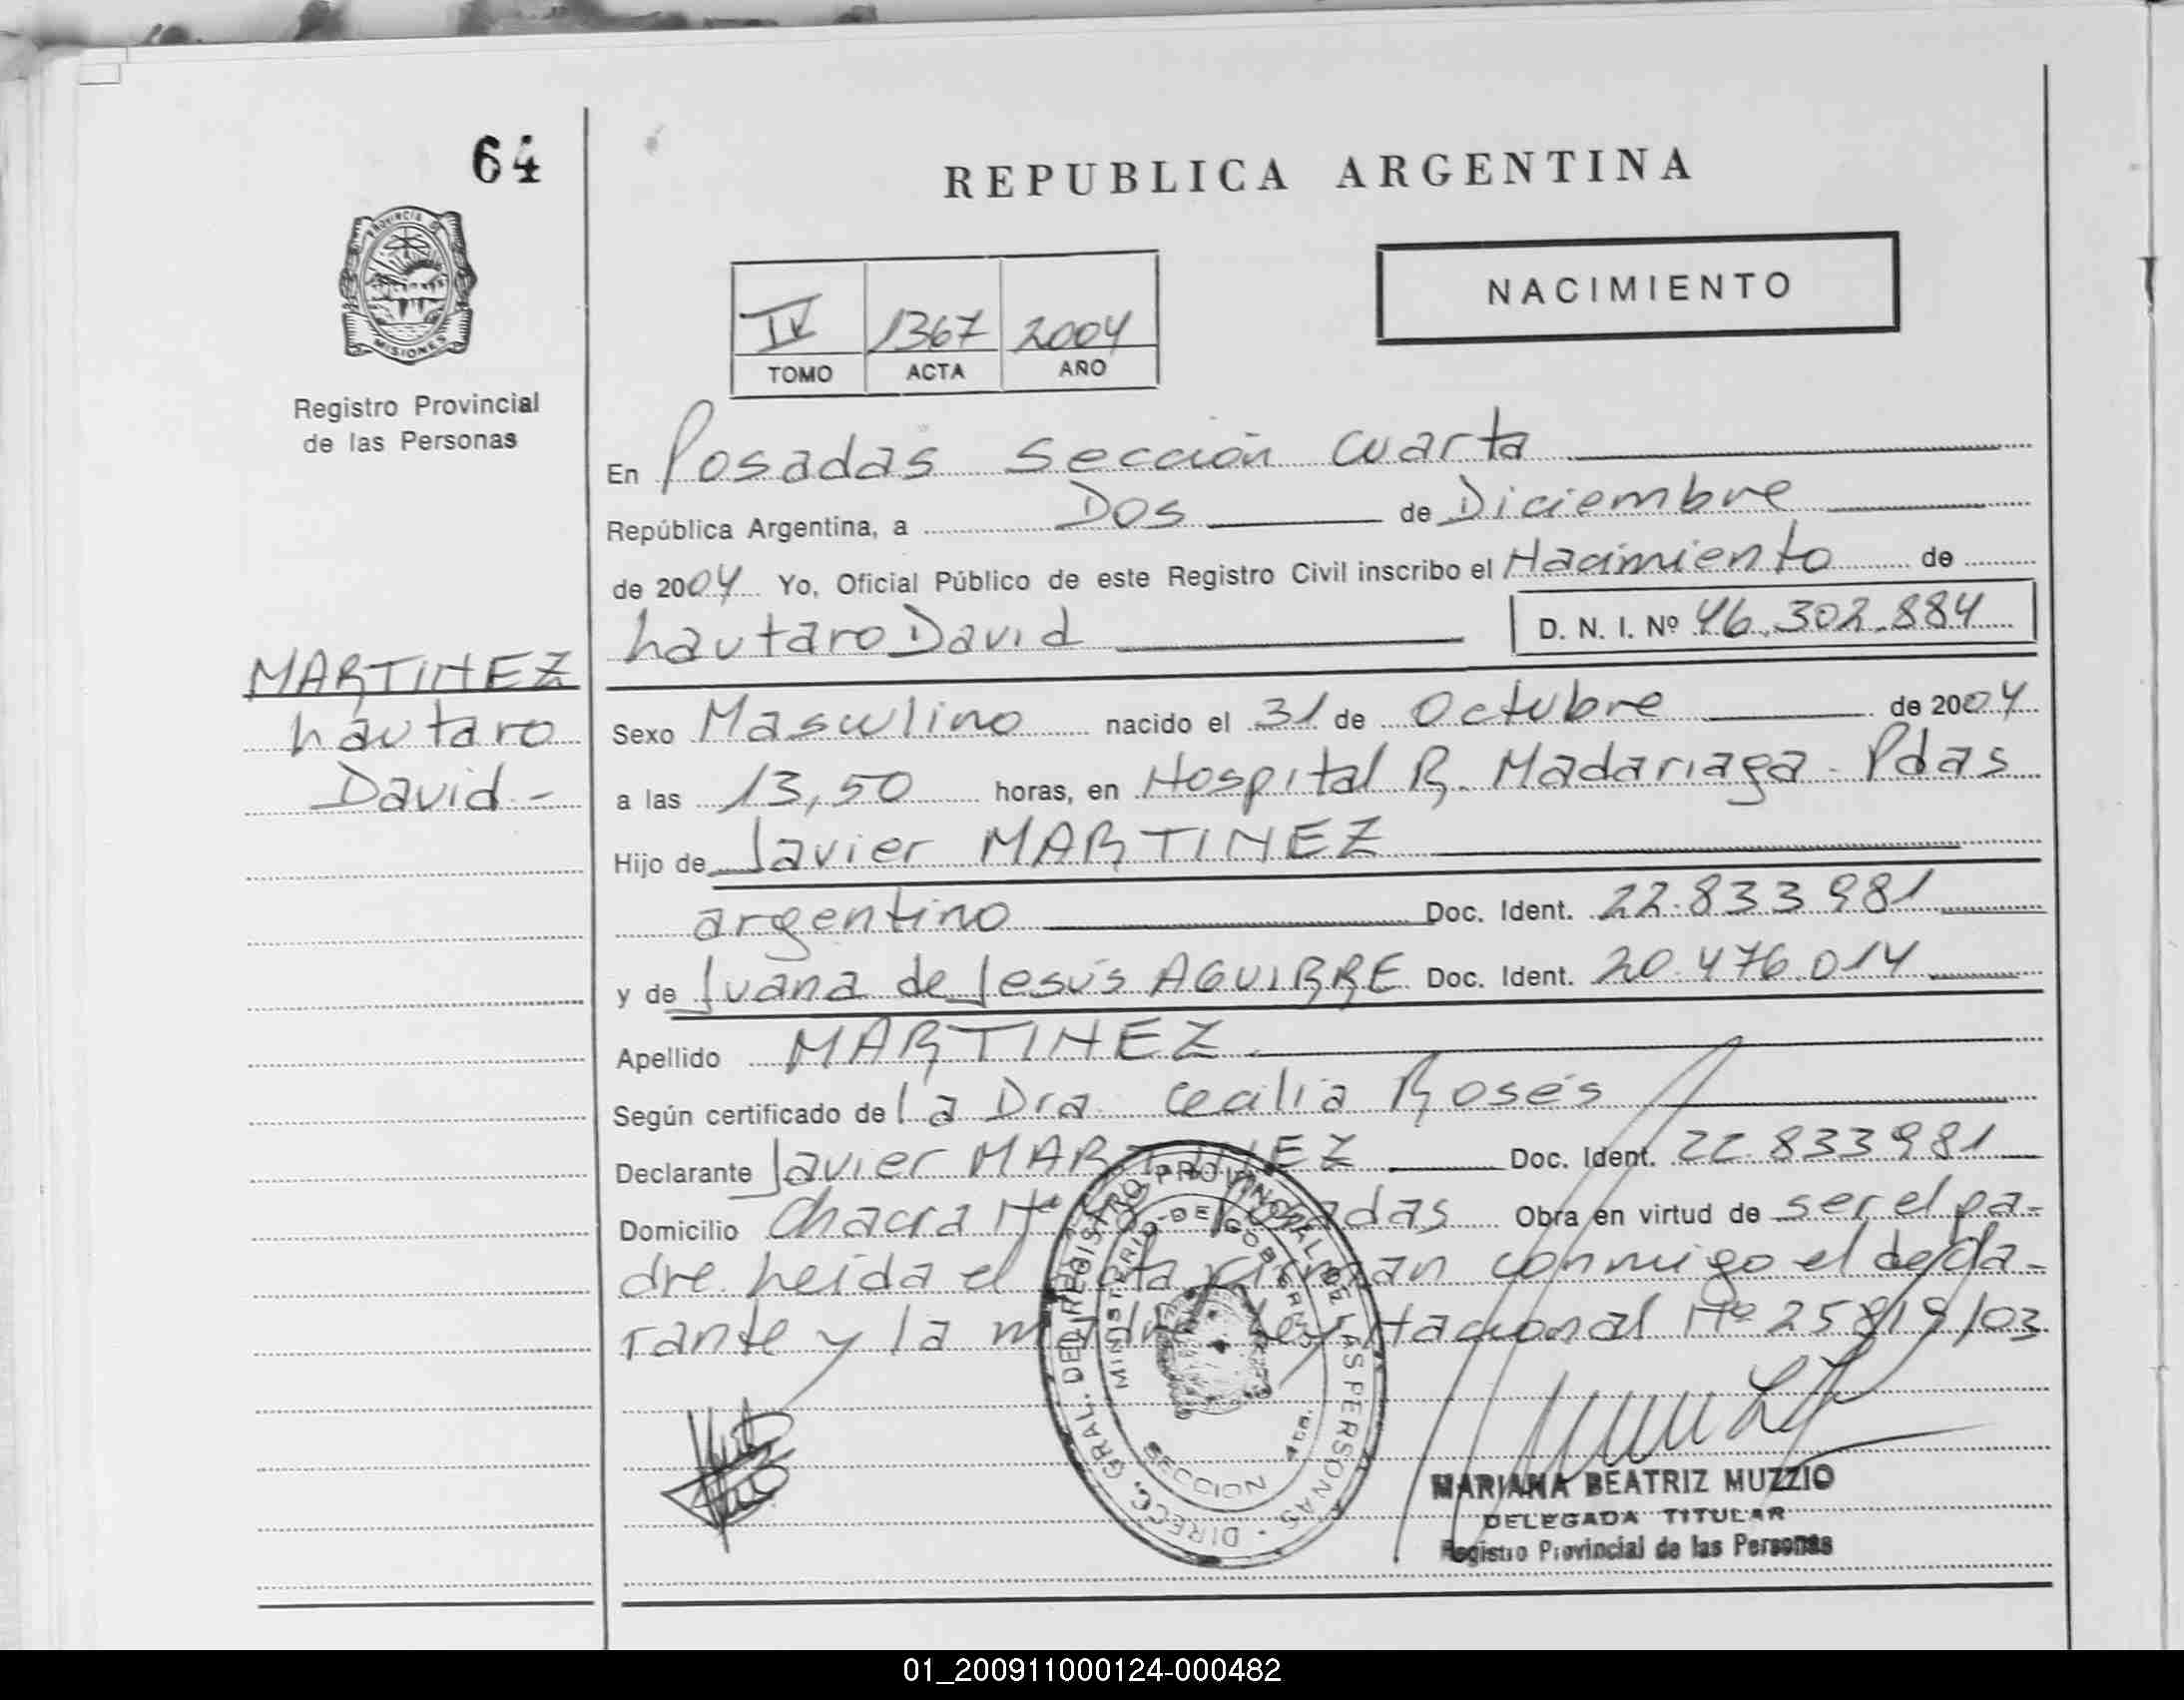 64
REPUBLICA ARGENTINA
PROVINCIA DE
MISIONES
Registro Provincial
de las Personas
NACIMIENTO
IV 1367 2004
TOMO ACTA AÑO
En Posadas Sección Cuarta
República Argentina, a Dos de Diciembre
de 2004 Yo, Oficial Público de este Registro Civil inscribo el Nacimiento de
Lautaro David D. N. I. Nº 46.302.884
MARTINEZ
Lautaro
David.-
Sexo Masculino nacido el 31 de Octubre de 2004
a las 13,50 horas, en Hospital R. Madariaga - Pdas
Hijo de Javier MARTINEZ
argentino Doc. Ident. 22.833.981
y de Juana de Jesús AGUIRRE Doc. Ident. 20.476.014
Apellido MARTINEZ.
Según certificado de la Dra. Cecilia Rosés
Declarante Javier MARTINEZ Doc. Ident. 22.833981
Domicilio Chacra Nº Posadas Obra en virtud de ser el pa-
dre. Leida el acta firman conmigo el decla-
rante y la madre Ley Nacional Nº 25819/03
DIRECC. GRAL. DEL REGISTRO PROVINCIAL DE LAS PERSONAS
MINISTERIO DE GOBIERNO
SECCION 4ta.
MARIANA BEATRIZ MUZZIO
DELEGADA TITULAR
Registro Provincial de las Personas
01_200911000124-000482